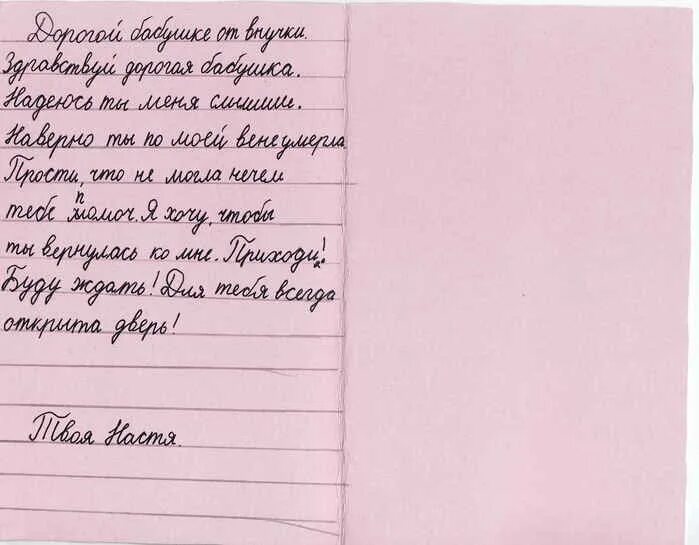 Дорогой бабушке от внучки.
Здравствуй дорогая бабушка.
Надеюсь ты меня слышиш.
Наверно ты по моей вене умерла
Прости, что не могла нечем
тебе помоч. Я хочу, чтобы
ты вернулась ко мне. Приходи!
Буду ждать! Для тебя всегда
открыта дверь!
Твоя Настя.